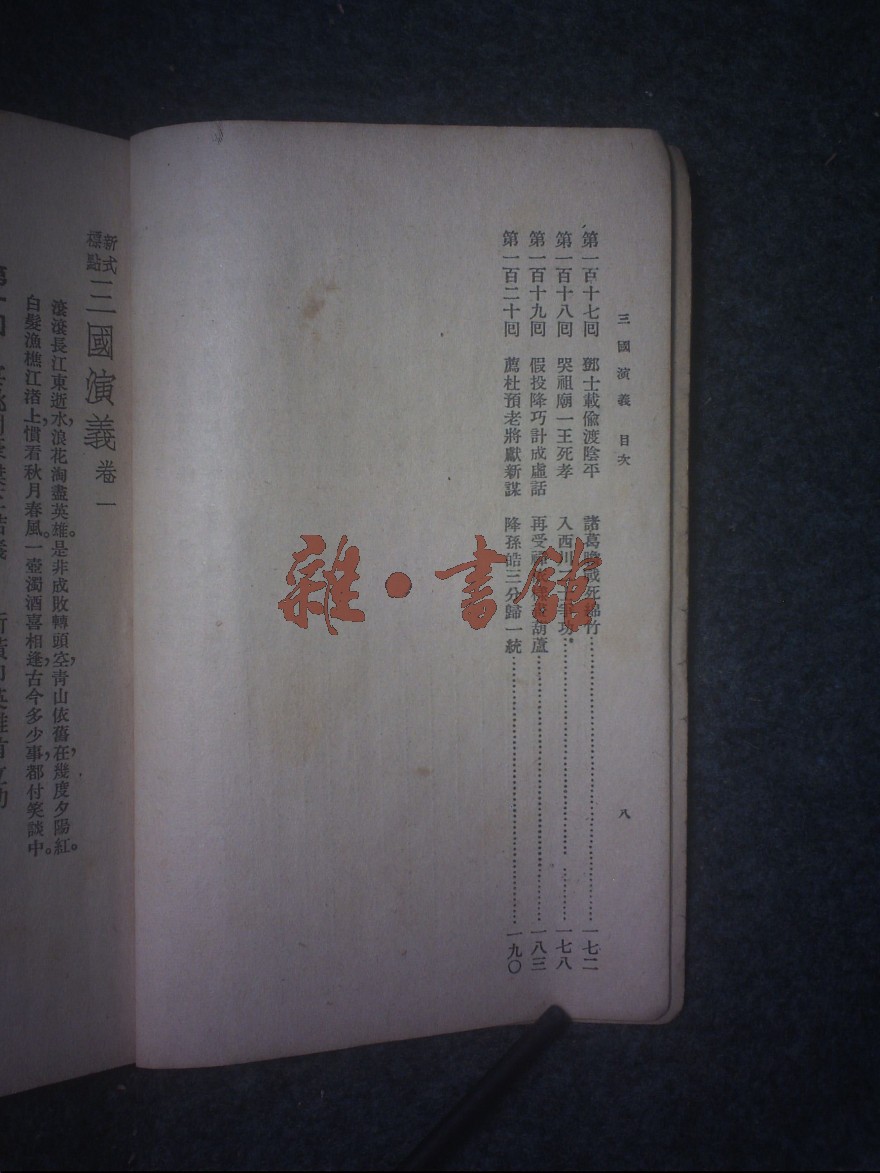 三國演義 目次 八
第一百十七回 鄧士載偷渡陰平 諸葛瞻戰死綿竹 一七二
第一百十八回 哭祖廟一王死孝 入西川二士爭功 一七八
第一百十九回 假投降巧計成虛話 再受禪 葫蘆 一八三
第一百二十回 薦杜預老將獻新謀 降孫皓三分歸一統 一九〇
雜•書館
新式標點 三國演義 卷一
滾滾長江東逝水，浪花淘盡英雄。是非成敗轉頭空，青山依舊在，幾度夕陽紅。
白髮漁樵江渚上，慣看秋月春風。一壺濁酒喜相逢，古今多少事，都付笑談中。